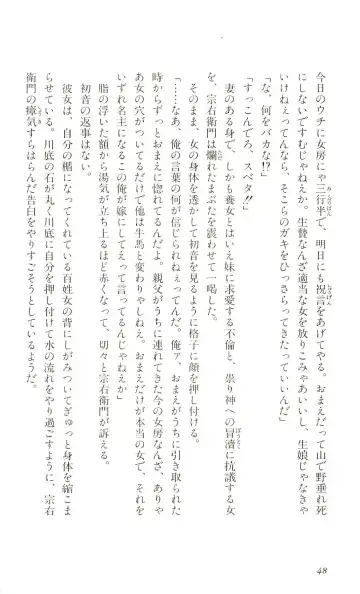 今日のウチに女房にゃ三行半で、明日にも祝言をあげてやる。おまえだって山で野垂れ死
にしないですむじゃねえか。生贄なんざ適当な女を放りこみゃあいいし、生娘じゃなきゃ
いけねぇってんなら、そこらのガキをひっさらってきたっていいんだ」
「な、何をバカな!?」
「すっこんでろ、スベタ!!」
妻のある身で、しかも養女とはいえ妹に求愛する不倫と、祟り神への冒瀆に抗議する女
を、宗右衛門は爛れたまぶたを震わせて一喝した。
そのまま、女の身体を透かして初音を見るように格子に顔を押し付ける。
「……なあ、俺の言葉の何が信じられねぇってんだ。俺ァ、おまえがうちに引き取られた
時からずっとおまえに惚れてるんだよ。親父がうちに連れてきた今の女房なんざ、ありゃ
あ女の穴がついてるだけで他は牛馬と変わりゃしねえ。おまえだけが本当の女で、それを
いずれ名主になるこの俺が嫁にしてえって言ってるんじゃねえか」
脂の浮いた額から湯気が立ち上るほど赤くなって、切々と宗右衛門が訴える。
初音の返事はない。
彼女は、自分の楯になってくれている百姓女の背にしがみついてぎゅっと身体を縮こま
らせている。川底の石が丸く川底に自分を押し付けて水の流れをやり過ごすように、宗右
衛門の瘴気すらはらんだ告白をやりすごそうとしているようだ。
48